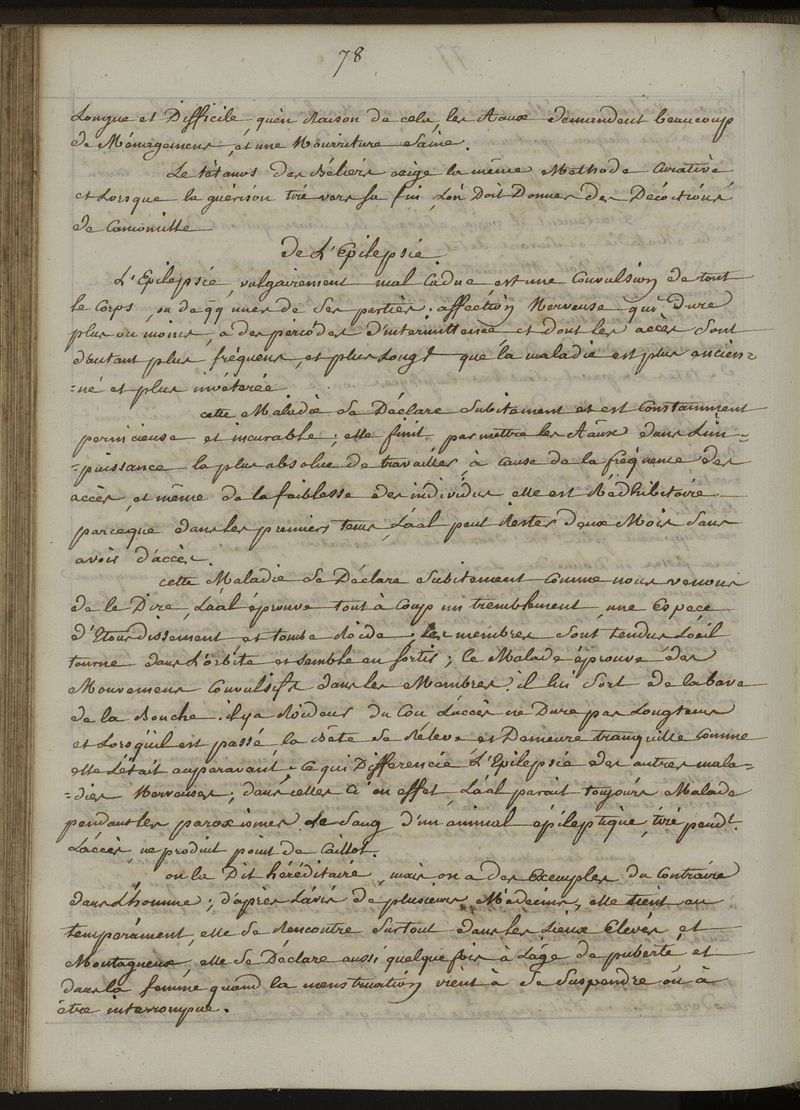 78
Longue et Difficile qu'en Raison de cela, les Aaux demandent beaucoup
de Ménagemens, et une Nourriture Saine.
Le tétanos des Béliers exige la même Méthode Curative,
et Lorsque la guérison tire vers sa fin, L'on Doit Donner des Décoctions
de Camomille
de L'Epilepsie.
L'Epilepsie, vulgairement mal Caduc est une Convulsion de tout
le Corps, ou de qq unes de Ses parties; affection Nerveuse qui dure
plus ou moins, a des périodes d'intermittence, et dont les accès sont
d'autant plus fréquens, et plus Longs que la maladie est plus ancien=
=ne et plus invétérée.
Cette Maladie Se Déclare Subitement et est Constamment
pernicieuse et incurable; elle finit par mettre les Aaux dans L'im=
=puissance la plus absolue de travailler, à cause de la fréquence des
accès, et même de la faiblesse des individus elle est Rédhibitoire.
parceque dans les premiers tems, L'aal peut Rester deux Mois Sans
avoir d'accès.
Cette Maladie Se Déclare Subitement Comme nous venons
de le Dire, L'aal éprouve tout à Coup un tremblement, une Espèce
d'Etourdissement et tombe Roide; Les membres Sont tendus L'oeil
tourne dans L'orbite et semble en Sortir; le Malade éprouve des
Mouvemens Convulsifs dans les Membres. il lui Sort de la bave
de la Bouche. il y a Roideur du Cou L'accès ne Dure pas Longtems
et Lorsqu'il est passé, la Bête Se Relève et Demeure tranquille Comme
elle L'était auparavant; Ce qui Différencie L'Epilepsie des autres mala=
=dies Nerveuses; dans celles Ci en effet, L'aal parait toujours Malade
pendant les paroxismes. Le Sang d'un animal épileptique, tiré pendt.
L'accès, ne produit point de Caillot.
on la Dit héréditaire, mais on a des Exemples du Contraire
dans L'homme; d'après L'avis de plusieurs Médecins, elle tient au
tempérament, elle Se Rencontre Surtout dans les Lieux Elevés, et
Montagneux, elle Se Déclare aussi quelque fois à L'âge de puberté, et
dans la femme quand la menstruation vient à Se Suspendre ou à
être interrompue.